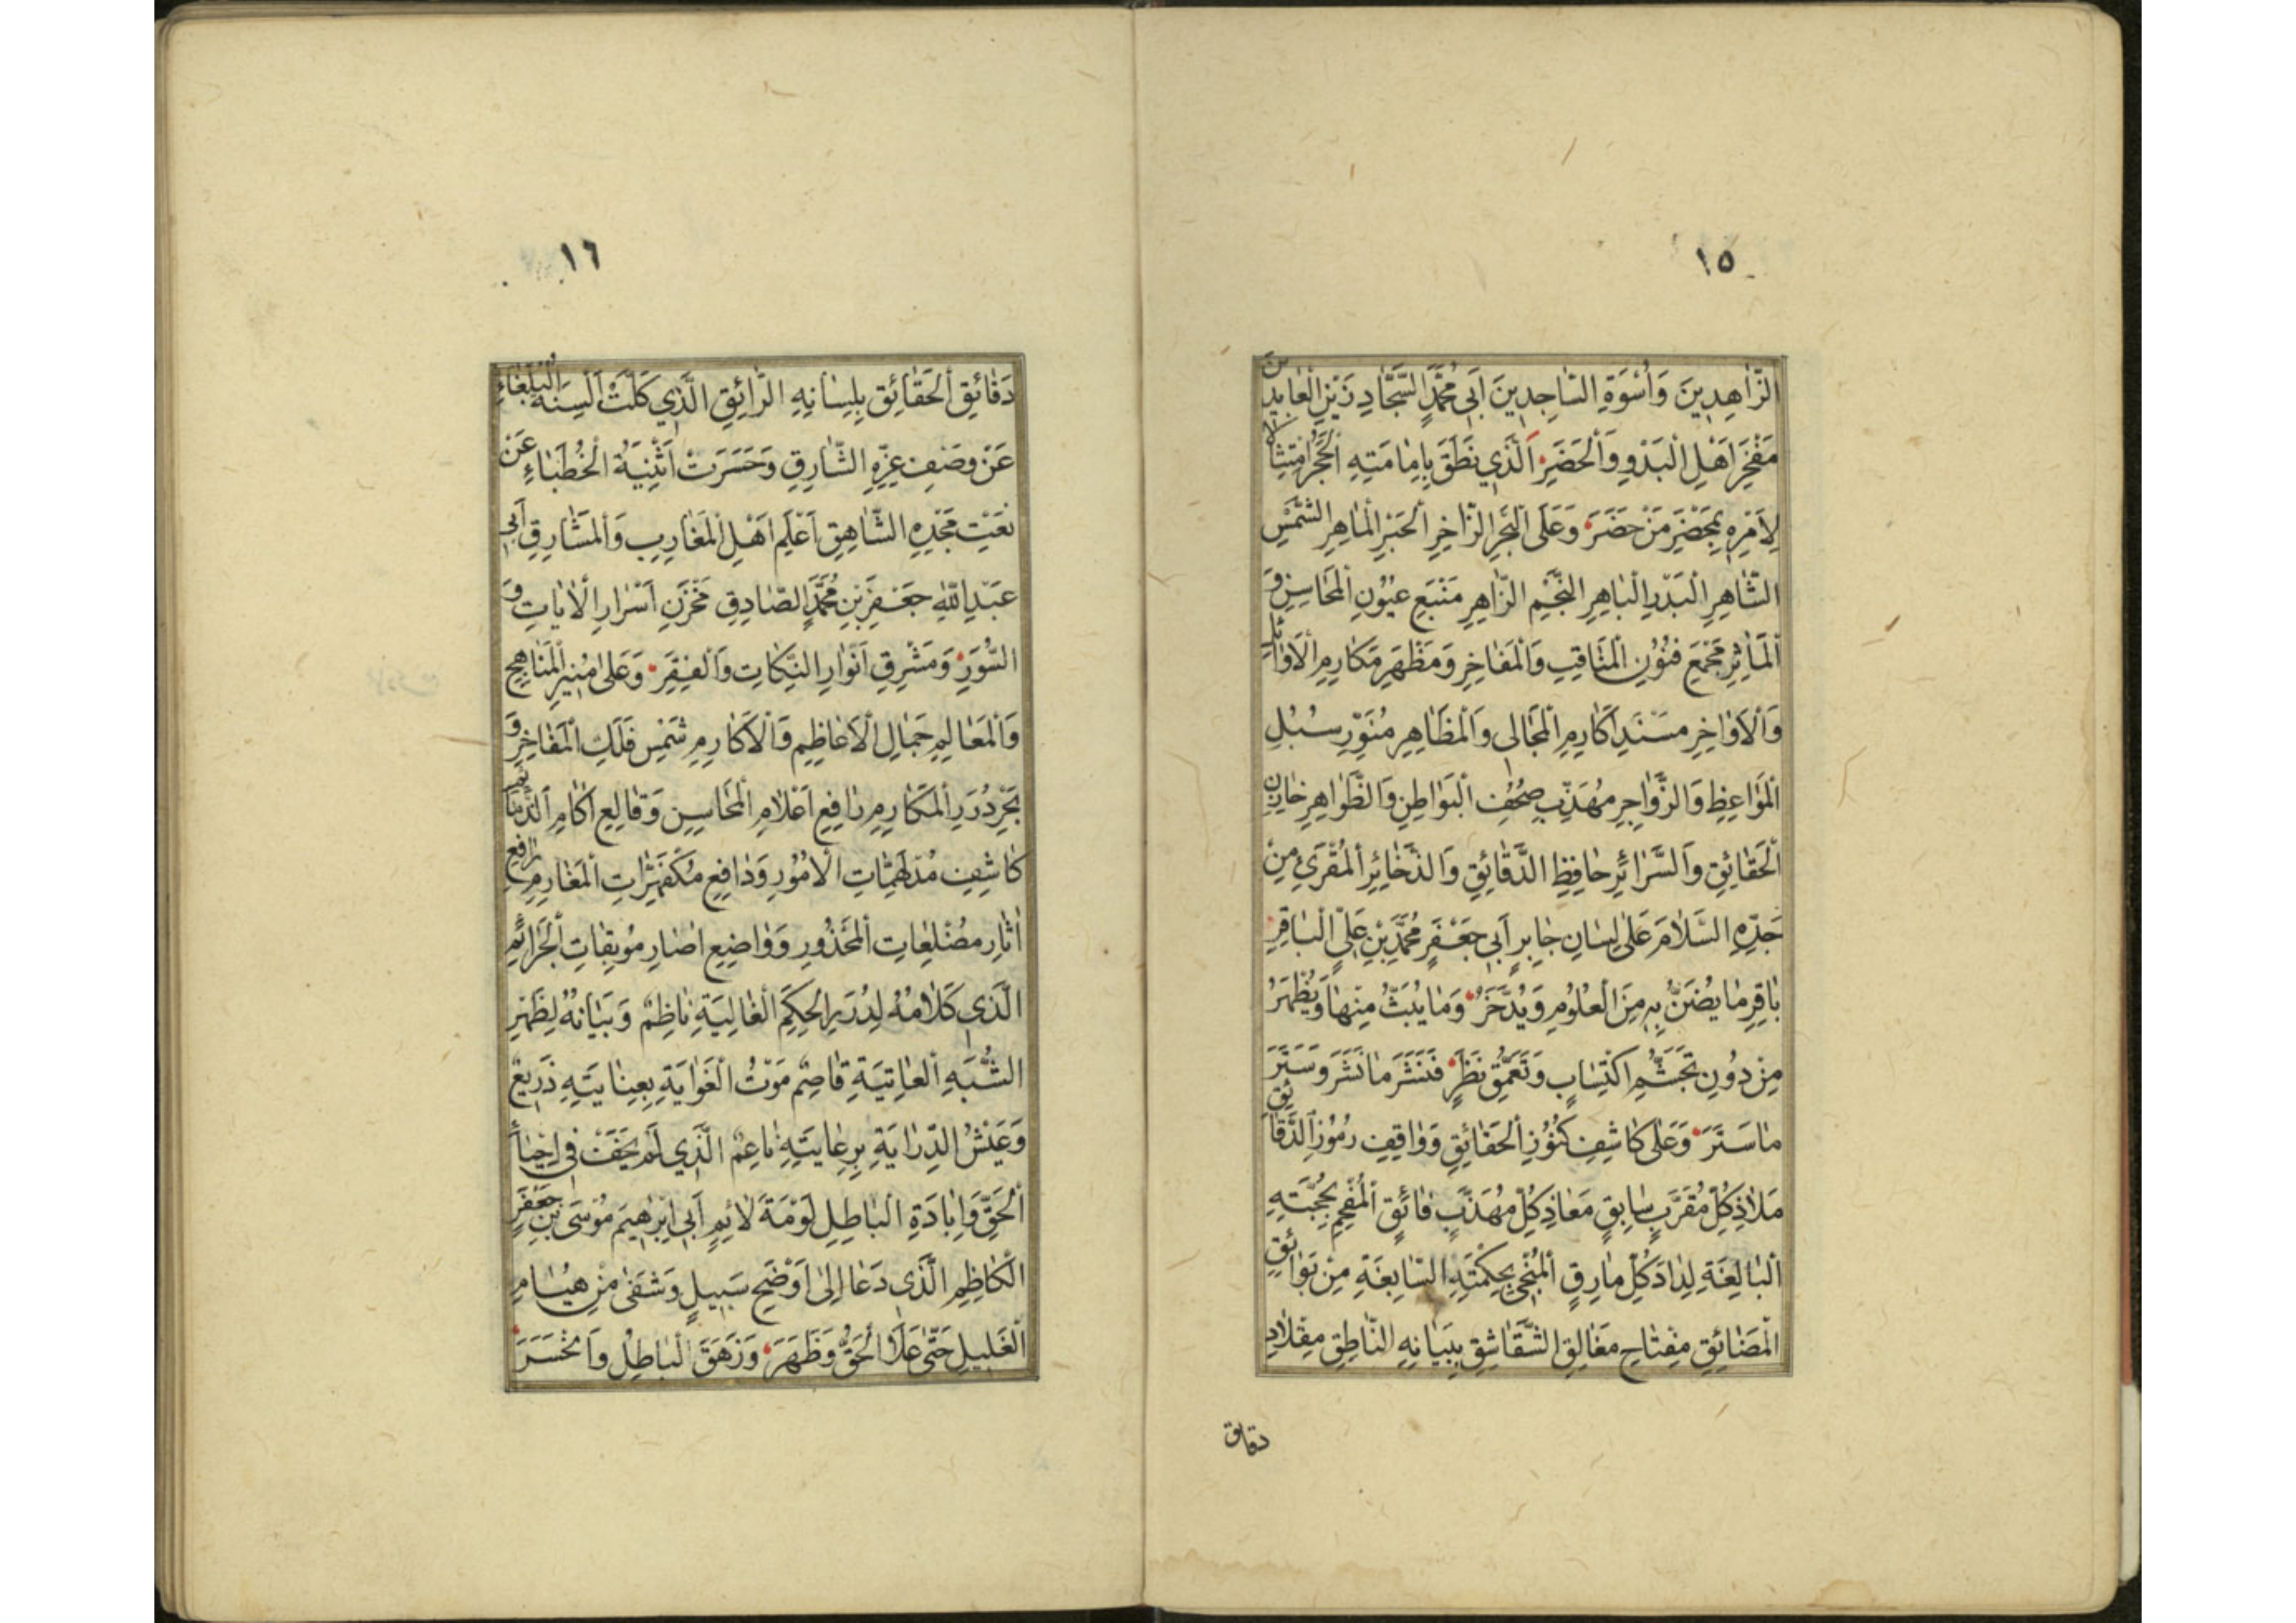 ١٥
الزَّاهِدِينَ وَأُسْوَةِ السَّاجِدِينَ أَبِي مُحَمَّدٍ السَّجَّادِ زَيْنِ الْعَابِدِينَ
مَفْخَرِ أَهْلِ الْبَدْوِ وَالْحَضَرِ الَّذِي نَطَقَ بِإِمَامَتِهِ الْحَجَرُ امْتِثَالًا
لِأَمْرِهِ بِمَحْضَرِ مَنْ حَضَرَ وَعَلَى الْبَحْرِ الزَّاخِرِ الْحَبْرِ الْمَاهِرِ الشَّمْسِ
الشَّاهِرِ الْبَدْرِ الْبَاهِرِ النَّجْمِ الزَّاهِرِ مَنْبَعِ عُيُونِ الْمَحَاسِنِ وَ
الْمَآثِرِ مَجْمَعِ فُنُونِ الْمَنَاقِبِ وَالْمَفَاخِرِ وَمَظْهَرِ مَكَارِمِ الْأَوَائِلِ
وَالْأَوَاخِرِ مَسْنَدِ أَكَارِمِ الْمَجَالِي وَالْمَظَاهِرِ مُنَوِّرِ سُبُلِ
الْمَوَاعِظِ وَالزَّوَاجِرِ مُهَذِّبِ صُحُفِ الْبَوَاطِنِ وَالظَّوَاهِرِ خَازِنِ
الْحَقَائِقِ وَالسَّرَائِرِ حَافِظِ الدَّقَائِقِ وَالذَّخَائِرِ الْمُقْرَئِ مِنْ
جَدِّهِ السَّلَامَ عَلَى لِسَانِ جَابِرٍ أَبِي جَعْفَرٍ مُحَمَّدِ بْنِ عَلِيٍّ الْبَاقِرِ
بَاقِرِ مَا يُضَنُّ بِهِ مِنَ الْعُلُومِ وَيُدَّخَرُ وَمَا يُبَثُّ مِنْهَا وَيُظْهَرُ
مِنْ دُونِ تَجَشُّمِ اكْتِسَابٍ وَتَعَمُّقِ نَظَرٍ فَنَشَرَ مَا نَشَرَ وَسَتَرَ
مَا سَتَرَ وَعَلَى كَاشِفِ كُنُوزِ الْحَقَائِقِ وَوَاقِفِ رُمُوزِ الدَّقَائِقِ
مَلَاذِ كُلِّ مُقَرَّبٍ سَابِقٍ مَعَاذِ كُلِّ مُهَذَّبٍ فَائِقٍ الْمُفْحِمِ بِحُجَّتِهِ
الْبَالِغَةِ لِدَادَ كُلِّ مَارِقٍ الْمُنْجِي بِحِكْمَتِهِ السَّابِغَةِ مِنْ بَوَائِقِ
الْمَضَائِقِ مِفْتَاحِ مَغَالِقِ الشَّقَاشِقِ بِبَيَانِهِ النَّاطِقِ مِقْلَادِ
دقایق
١٦
دَقَائِقِ الْحَقَائِقِ بِلِسَانِهِ الرَّائِقِ الَّذِي كَلَّتْ أَلْسِنَةُ الْبُلَغَاءِ
عَنْ وَصْفِ عِزِّهِ الشَّارِقِ وَحَسَرَتْ أَثْنِيَةُ الْخُطَبَاءِ عَنْ
نَعْتِ مَجْدِهِ الشَّاهِقِ أَعْلَمِ أَهْلِ الْمَغَارِبِ وَالْمَشَارِقِ أَبِي
عَبْدِ اللهِ جَعْفَرِ بْنِ مُحَمَّدٍ الصَّادِقِ مَخْزَنِ أَسْرَارِ الْآيَاتِ وَ
السُّوَرِ وَمَشْرِقِ أَنْوَارِ النِّكَاتِ وَالْفِقَرِ وَعَلَى مُنِيرِ الْمَنَاهِجِ
وَالْمَعَالِمِ جَمَالِ الْأَعَاظِمِ وَالْأَكَارِمِ شَمْسِ فَلَكِ الْمَفَاخِرِ وَ
بَحْرِ دُرَرِ الْمَكَارِمِ رَافِعِ أَعْلَامِ الْمَحَاسِنِ وَقَالِعِ آكَامِ الذَّمَائِمِ
كَاشِفِ مُدْلَهِمَّاتِ الْأُمُورِ وَدَافِعِ مُكْفَهِرَّاتِ الْمَغَارِمِ رَافِعِ
آثَارِ مُضْلِعَاتِ الْمَحْذُورِ وَوَاضِعِ آصَارِ مُوبِقَاتِ الْجَرَائِمِ
الَّذِي كَلَامُهُ لِدُرَرِ الْحِكَمِ الْغَالِيَةِ نَاظِمٌ وَبَيَانُهُ لِظَهْرِ
الشُّبَهِ الْعَاتِيَةِ قَاصِمٌ مَوْتُ الْغَوَايَةِ بِعِنَايَتِهِ ذَرِيعٌ
وَعَيْشُ الدِّرَايَةِ بِرِعَايَتِهِ نَاعِمٌ الَّذِي لَمْ يَخَفْ فِي إِحْيَاءِ
الْحَقِّ وَإِبَادَةِ الْبَاطِلِ لَوْمَةَ لَائِمٍ أَبِي إِبْرَاهِيمَ مُوسَى بْنِ جَعْفَرٍ
الْكَاظِمِ الَّذِي دَعَا إِلَى أَوْضَحِ سَبِيلٍ وَشَفَى مِنْ هُيَامِ
الْغَلِيلِ حَتَّى عَلَا الْحَقُّ وَظَهَرَ وَزَهَقَ الْبَاطِلُ وَانْحَسَرَ